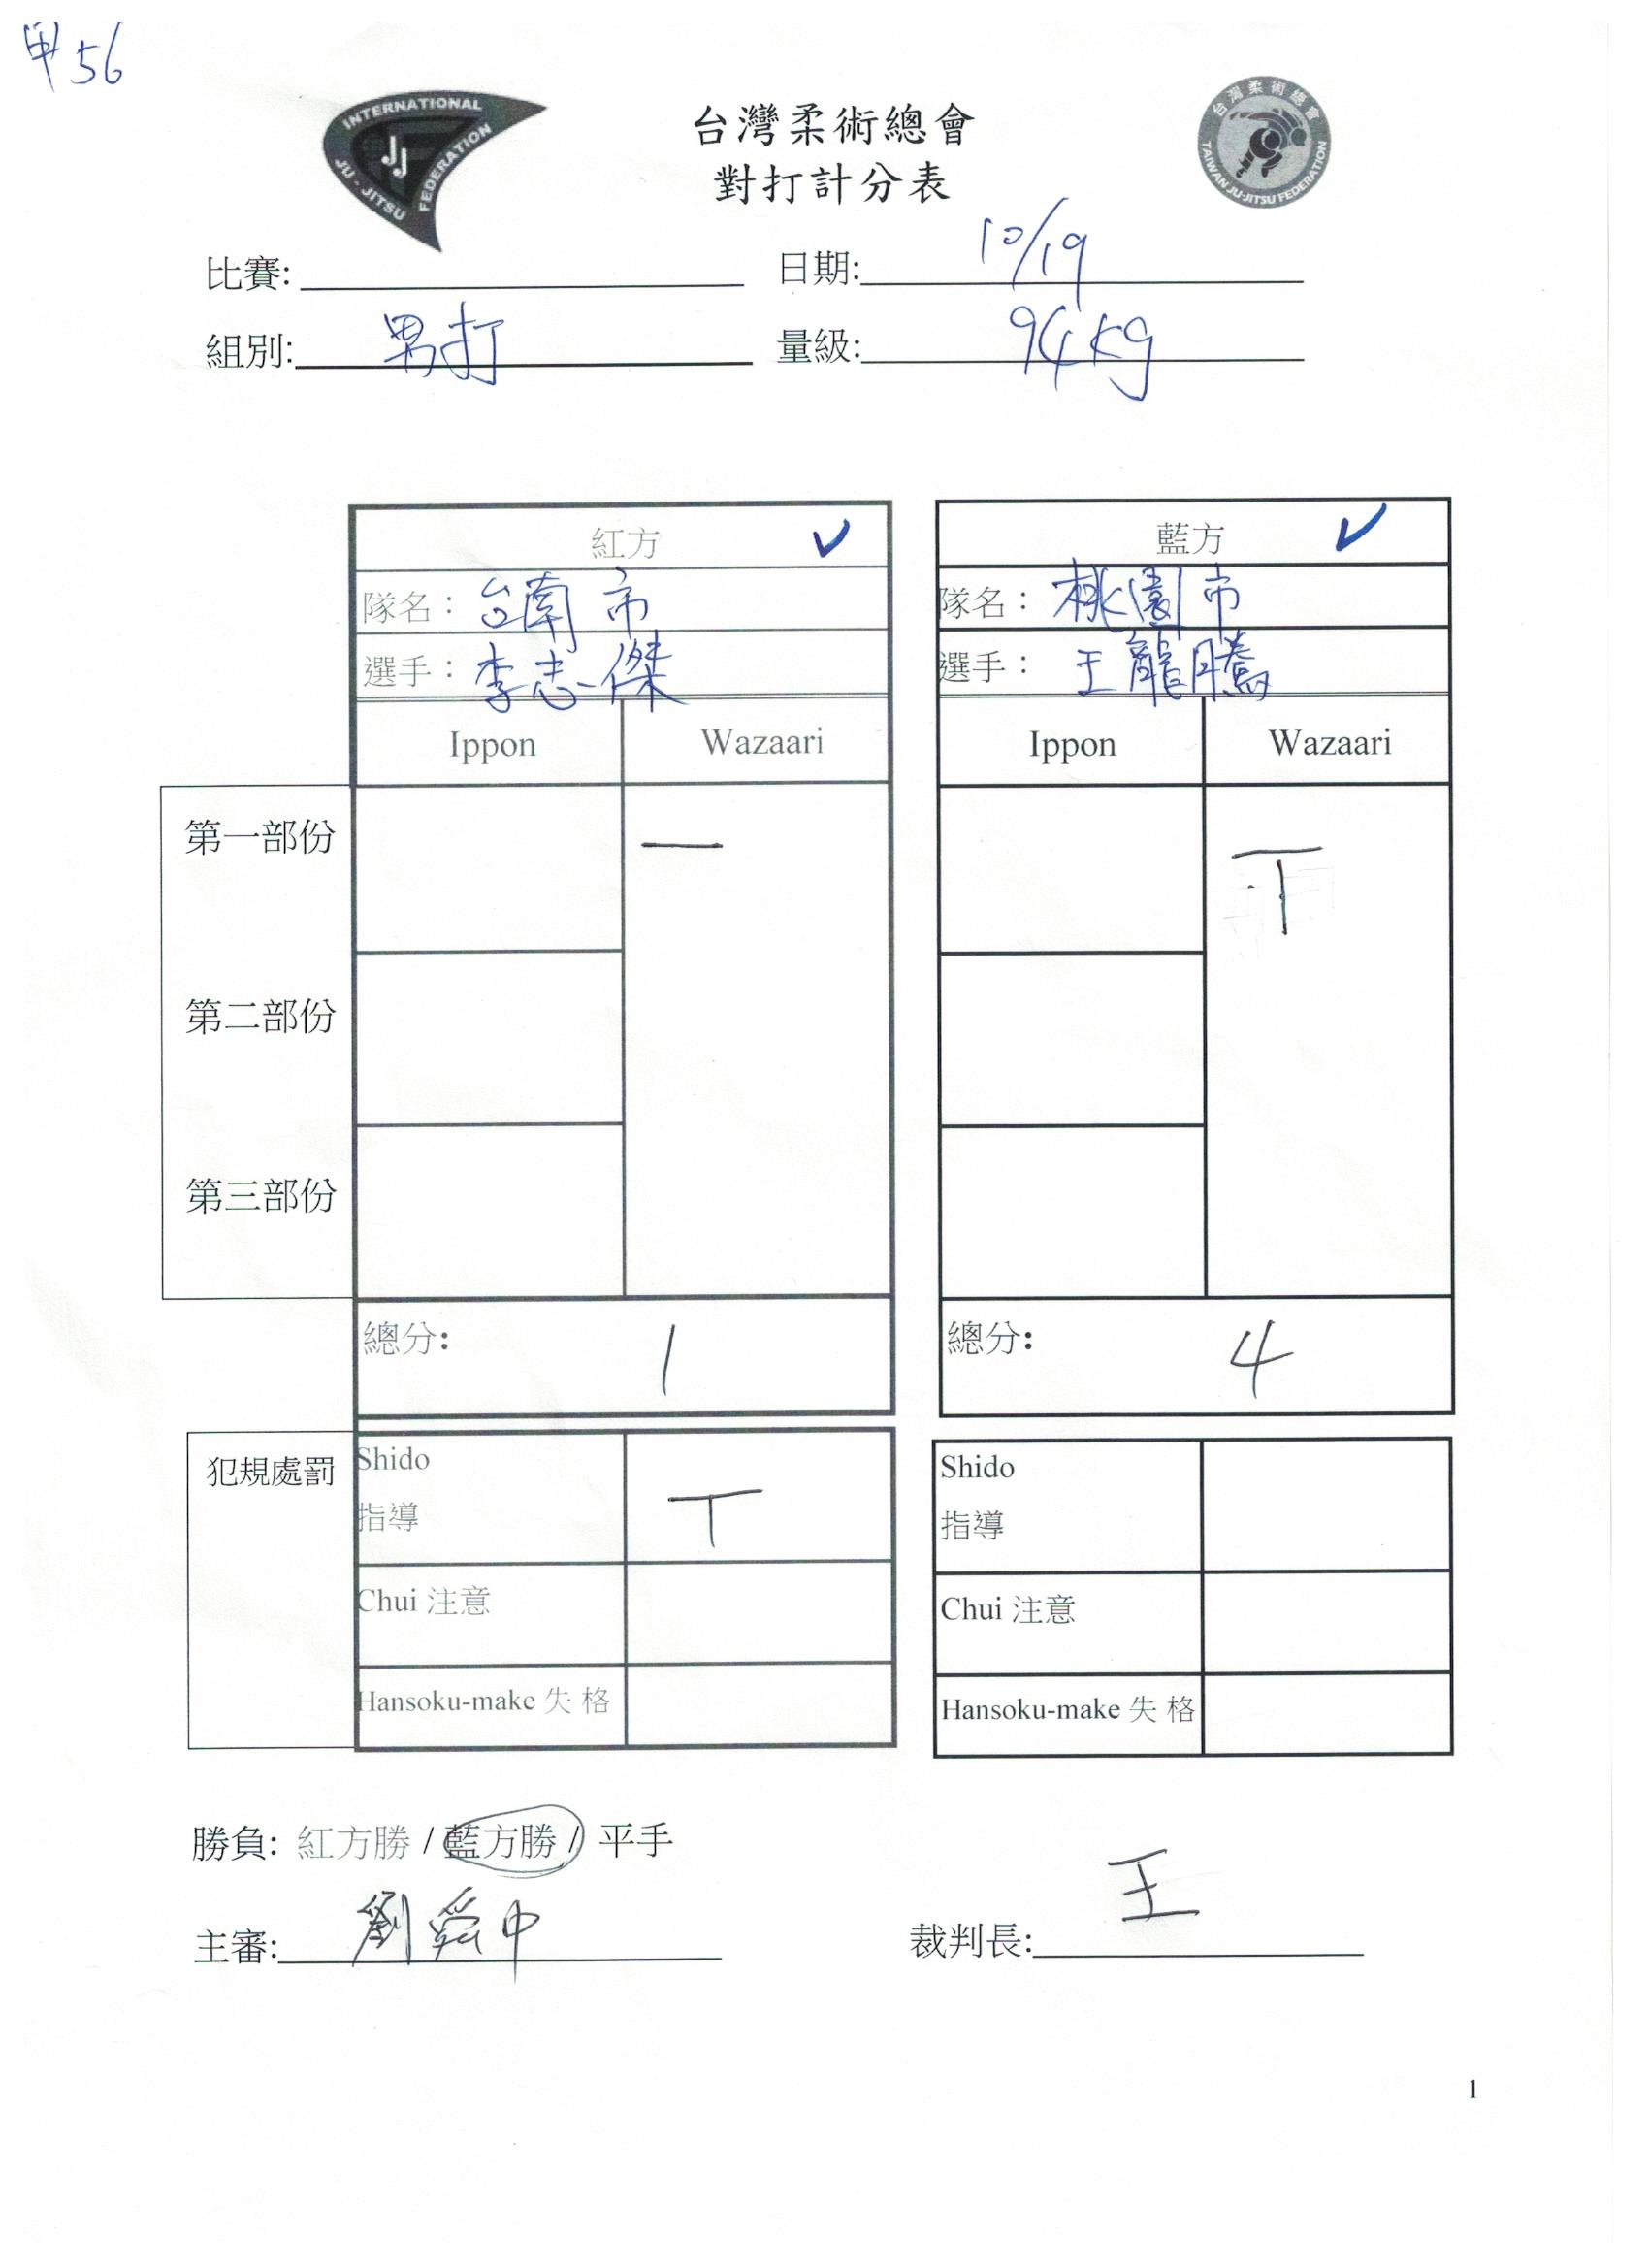 甲56
INTERNATIONAL JU-JITSU FEDERATION
JJ
台灣柔術總會
TAIWAN JU-JITSU FEDERATION
台灣柔術總會
對打計分表
比賽: 日期: 10/19
組別: 男打 量級: 94kg
紅方 ✓ 藍方 ✓
隊名： 台南市 隊名： 桃園市
選手： 李志傑 選手： 王龍騰
Ippon Wazaari Ippon Wazaari
第一部份 一 丅
第二部份
第三部份
總分: 1 總分: 4
犯規處罰 Shido 丅 Shido
指導 指導
Chui 注意 Chui 注意
Hansoku-make 失 格 Hansoku-make 失 格
勝負: 紅方勝 / 藍方勝 / 平手
主審: 劉舜中 裁判長: 王
1